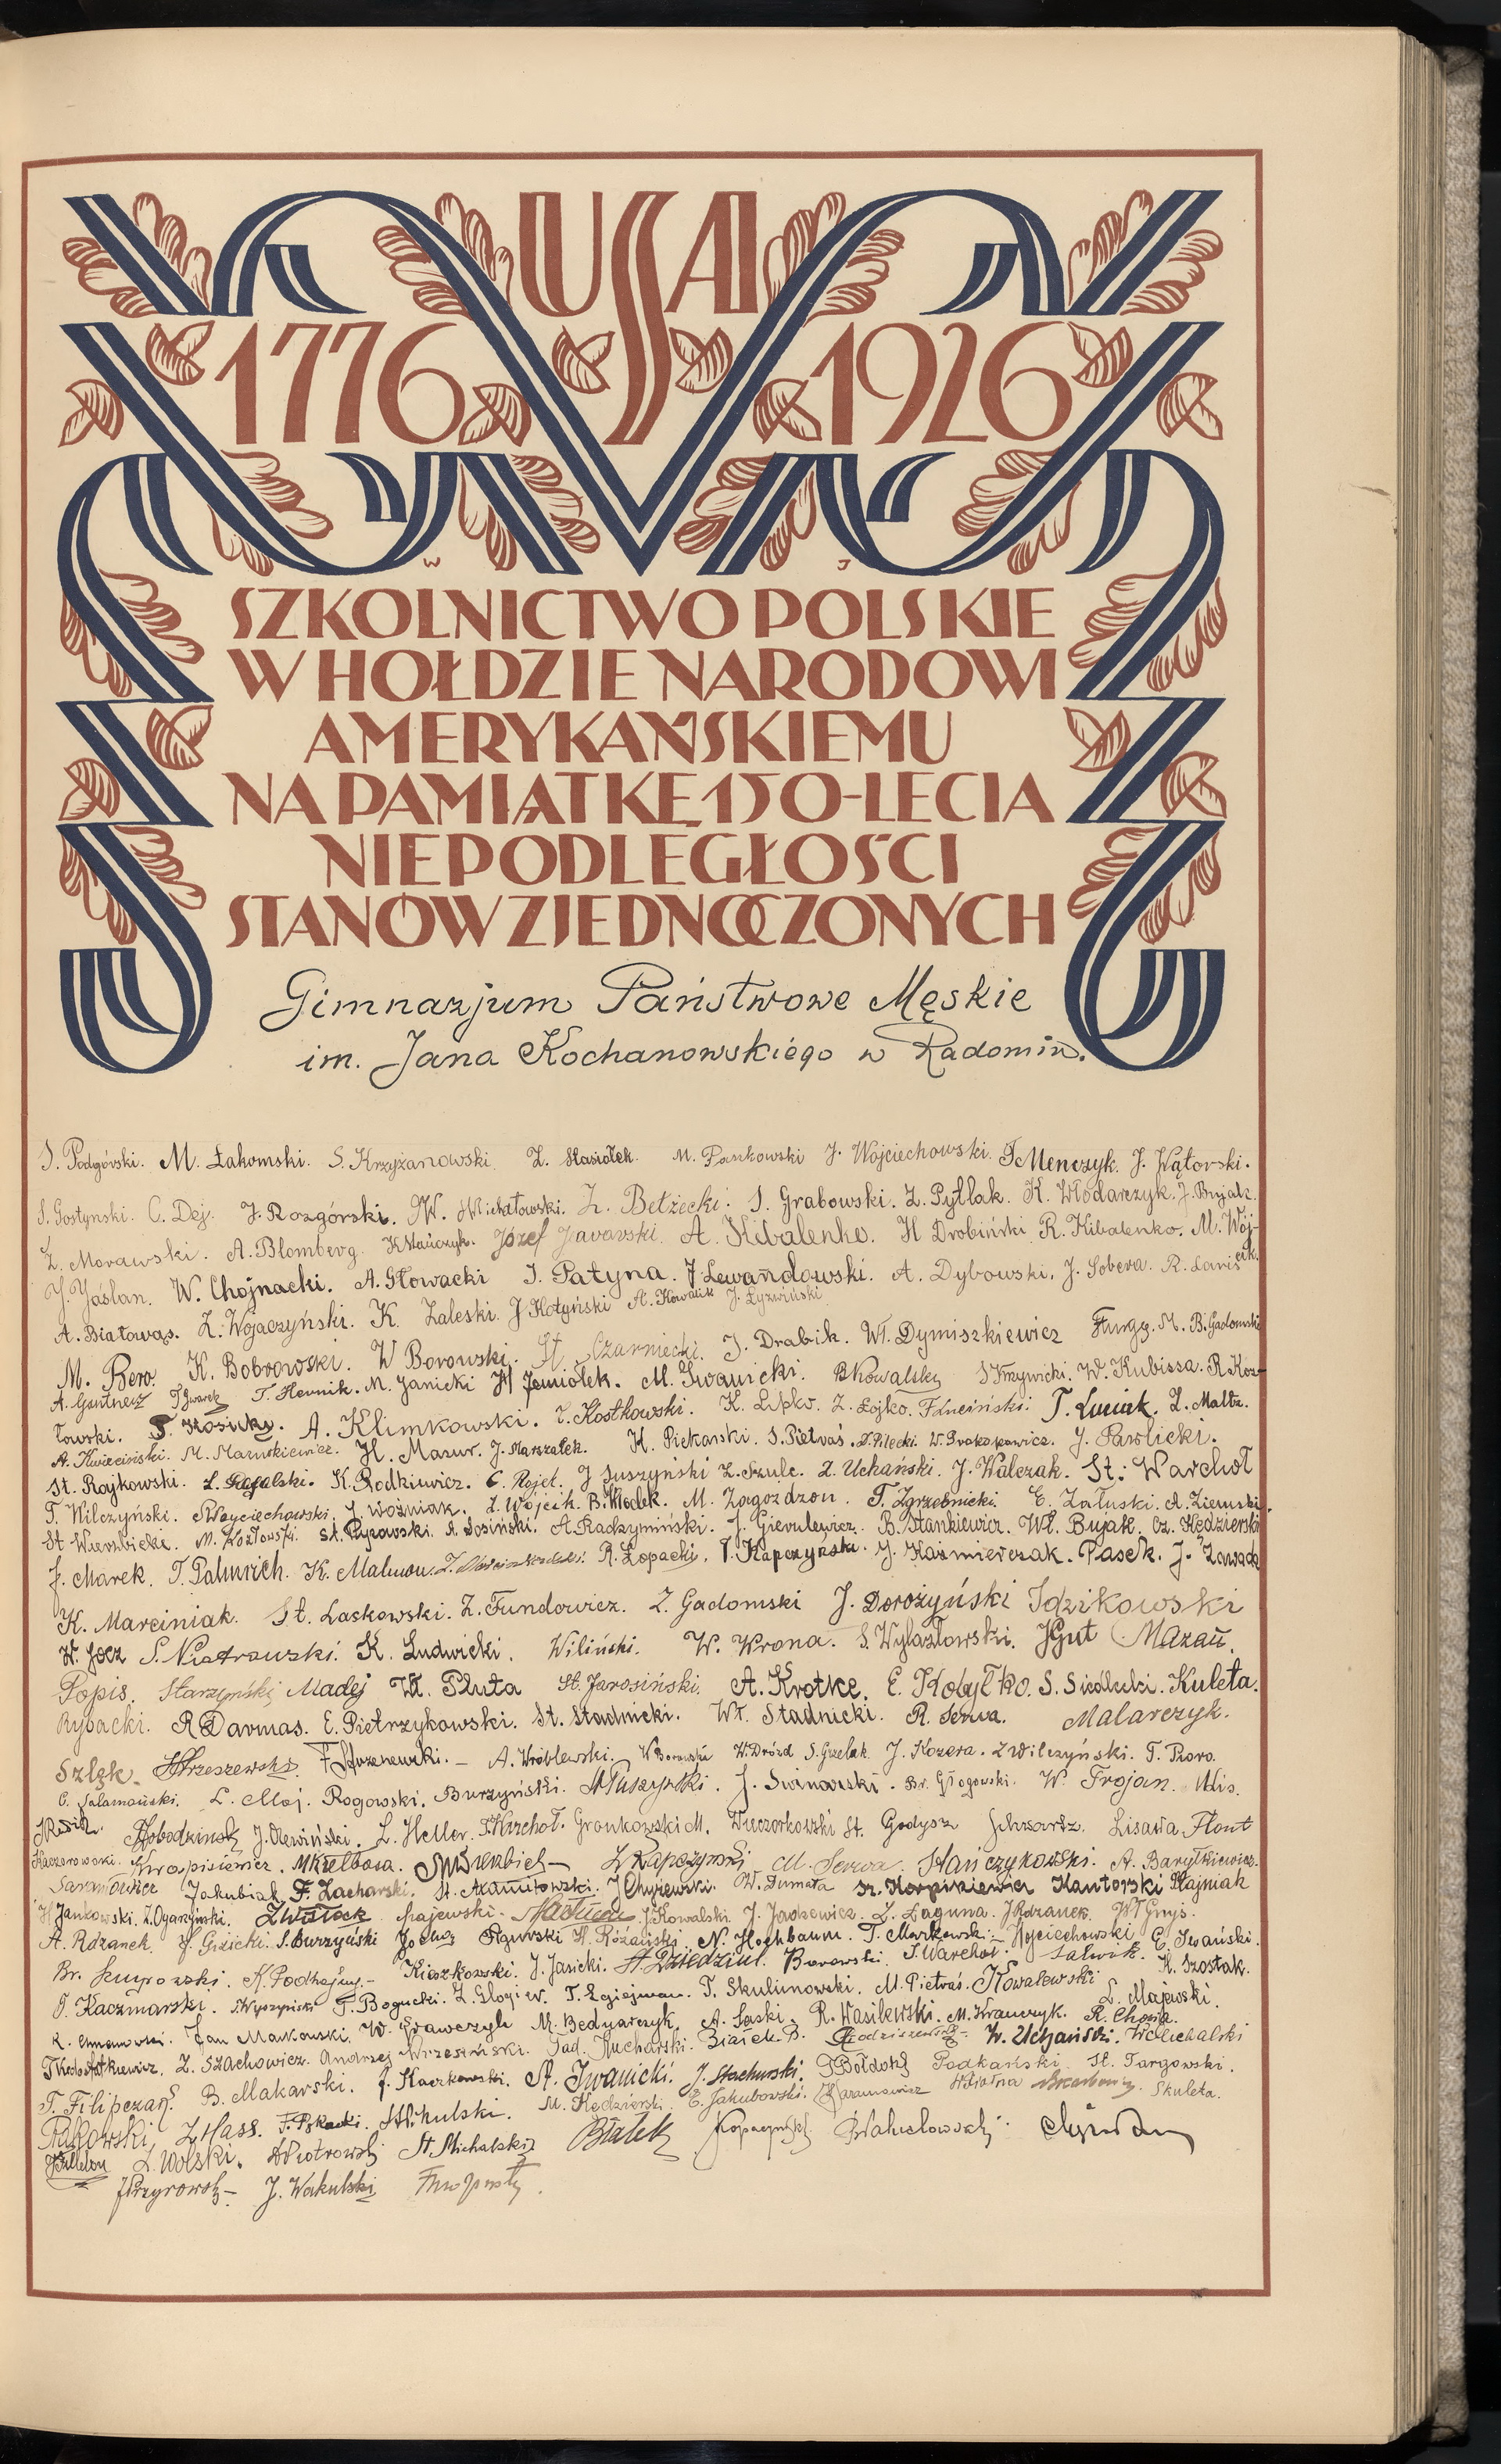 USA
1776 1926
W J
SZKOLNICTWO POLSKIE
W HOŁDZIE NARODOWI
AMERYKAŃSKIEMU
NA PAMIĄTKĘ 150-LECIA
NIEPODLEGŁOŚCI
STANÓW ZJEDNOCZONYCH
Gimnazjum Państwowe Męskie
im. Jana Kochanowskiego w Radomiu.
S. Podgórski. M. Łakomski. S. Krzyżanowski Z. Stasiołek. M. Pankowski J. Wojciechowski. T Menczyk. J. Wątorski.
S. Gostynski. C. Dej. J. Rozgórski. W. Michałowski. Z. Bełżecki. S. Grabowski. Z. Pytlak. K. Włodarczyk. J. Bujak.
Z. Morawski. A. Blomberg. Józef Jaworski. A. Kibalenko. H Drobiński R. Kibalenko. M. Wój-
J. Jaślan. W. Chojnacki. A. Głowacki J. Patyna. J Lewandowski. A. Dybowski. J. Sobera. R. Lawis cik.
A. Białowąs. Z. Wojaczyński. K. Zaleski. J Hołyński A. Kowalik J. Łyżwiński
M. Bero. K. Bobrowski. W Borowski. St. Czarniecki. J. Drabik. Wł. Dymiszkiewicz M. B. Gadomski
A. Gantner T. Gwarek T. Hernik. M. Janicki H Jemiołek. M. Iwanicki. B Kowalski S Krzywicki. W. Kubissa. R. Koz-
łowski. T. Kosicki. A. Klimkowski. T. Kostkowski. K. Lipko. Z. Łojko. F. Łuciński. T. Luniak. Z. Malta.
A. Kwieciński. M. Mazurkiewicz. H. Mazur. J. Marszałek. K. Piekarski. S. Pietraś. Z. Pilecki. W. Prokopowicz. J. Pawlicki.
St. Rojkowski. K. Rodkiewicz. C. Rojet. J Suszyński Z. Szulc. Z. Uchański. J. Walczak. St. Warchoł
T. Wilczyński. P Wojciechowski J. Woźniak. Z. Wójcik. B. Kłodek. M. Zagożdzon. T. Zgrzebnicki. E. Załuski. A. Ziemski.
St Wierzbicki. M. Kozłowski. St. Pyzowski. A. Sosiński. A. Radzymiński. J. Gierulewicz. B. Stankiewicz. Wł. Bujak. Cz. Kędzierski
J. Marek. T. Palmrich. K. R. Łopacki. T. Kapczyński. J. Kaźmierczak. Pasek. J. Zawada
K. Marciniak. St. Laskowski. Z. Fundowicz. Z. Gadomski J. Dorożyński Idzikowski
W. Jocz S. Piotrowski. K. Ludwicki. Wiliński. W. Wrona. S. Wylazłowski. J Gut Mazań.
Popis. Starzyński Madej Wł. Pluta St. Jarosiński. A. Krotke. E. Kobyłko. S. Siedlecki. Kuleta.
Rybacki. R Darmas. E. Pietrzykowski. St. Stadnicki. Wł. Stadnicki. R. Serwa. Malarczyk.
Szlęk. A. Wróblewski. W Borowski W. Drózd S. Grzelak J. Kozera. Z Wilczyński. T. Pzoro.
C. Salamański. L. Maj. Rogowski. Burzyński. J. Swinarski. Br. Głogowski. W. Trojan. Mis.
J. Olewiński. L. Heller. Gronkowski M. Wieczorkowski St. Godysz Schwartz. Lisawa Flont
Kaczorowski. Kwapisiewicz. M Kiełbasa. Z Kapczyński M. Serwa. Stańczykowski. A. Baryłkiewicz.
Sarnowicz Jakubiak F. Zacharski. J Chyżewski. W. Dumała Kantorski Majniak
H Jankowski. Z. Ogarzyński. Z Wistock Majewski. J Kowalski J. Jackowicz. Z. Łaguna. J Rdzanek. Wł Gnyś.
A. Rdzanek. J. Gizicki. S. Burzyński Figurski H. Różański. N. Hochbaum. T. Markowski. Wojciechowski E. Iwański.
Br. K. Podhajny. Kiaszkowski. J. Jasicki. A. Dziedzic. Borowski. T. Warchoł. Salwik. H. Szostak.
O. Kaczmarski. S. Wyszyński T. Bogucki. Z. Glogier. T. Skulimowski. M. Pietraś. Kowalewski L. Majewski.
Jan Makowski. W. Grawczyk M. Bednarczyk. A. Saski. R. Wasilewski. M. Krawczyk. R. Choja.
Z. Szachowicz. Andrzej Wrzesiński. Tad. Kucharski. Białek B. W. Uchański. W Michalski
T. Filipczak. B. Makarski. J. Kaczkowski. A. Iwanicki. J. Stachurski. Podkański St. Targowski.
Rakowski. Z Hass. M. Kędzierski. E. Jakubowski. Skuleta.
Z. Wolski. A Piotrowski St. Michalski Białek
J. Wakulski